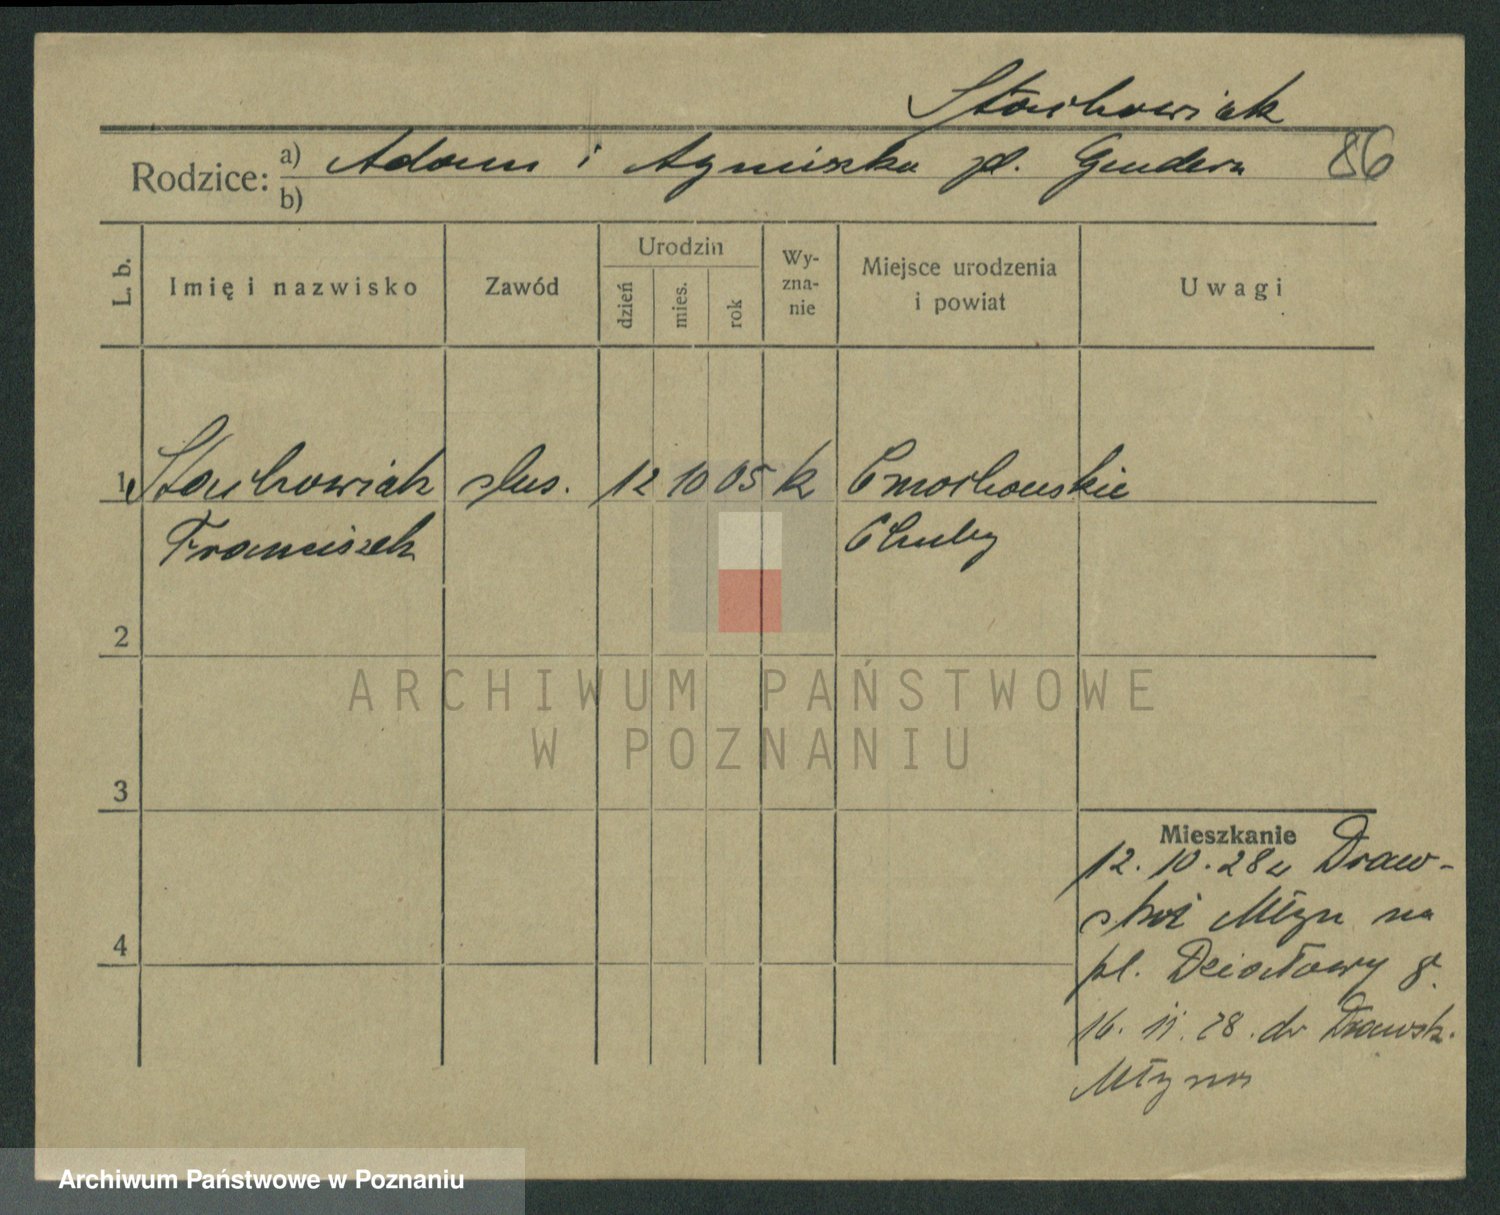 Stachowiak
Rodzice: a) Adam i Agnieszka zd. Gendera 86
b)
L. b. Imię i nazwisko Zawód Urodzin dzień mies. rok Wy-zna-nie Miejsce urodzenia i powiat Uwagi
1 Stachowiak ślus. 12 10 05 k Cmochowskie
Franciszek Chuby
2
ARCHIWUM PAŃSTWOWE
W POZNANIU
3
Mieszkanie
12.10.28 Draw-
ski Młyn na
pl. Działowy 8.
4
16. 11. 28. do Drawsk.
Młyna
Archiwum Państwowe w Poznaniu